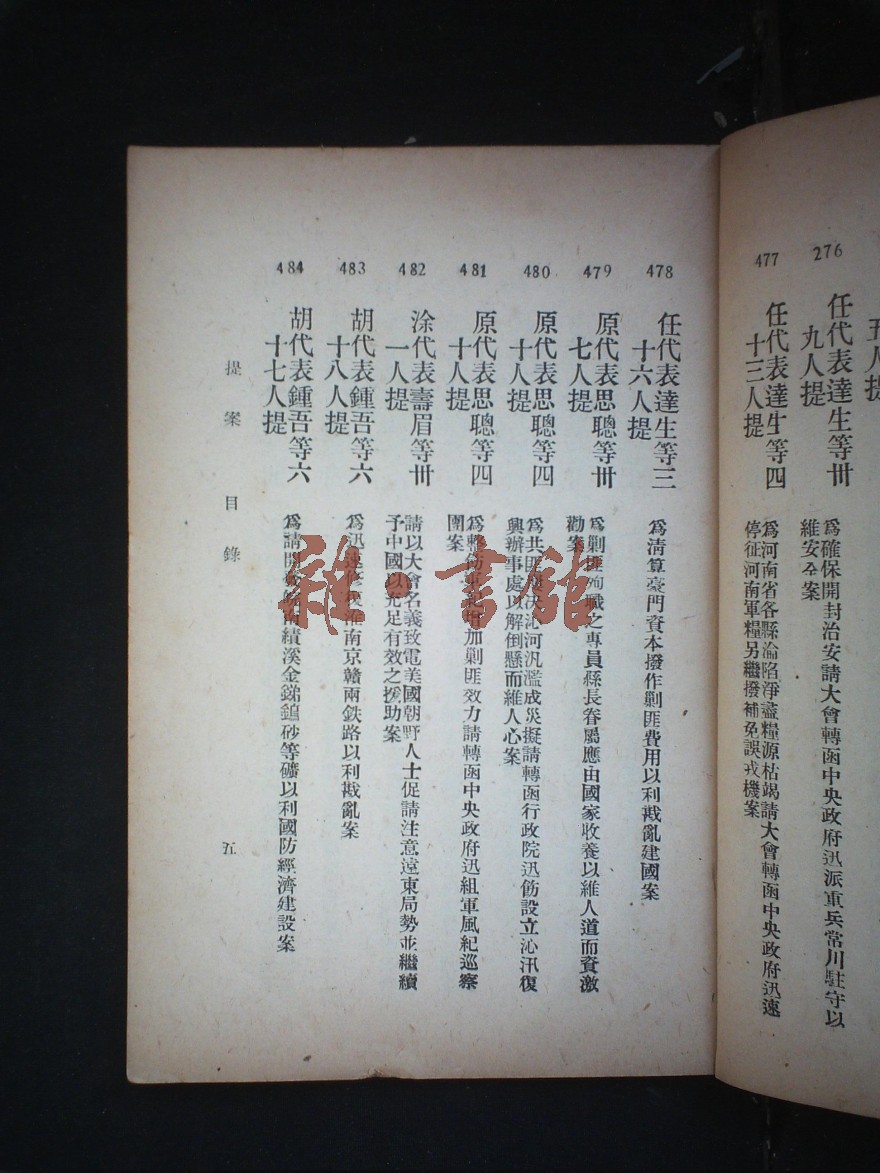 五人提
276
任代表達生等卅
九人提
爲確保開封治安請大會轉函中央政府迅派重兵常川駐守以
維安全案
477
任代表達生等四
十三人提
爲河南省各縣淪陷淨盡糧源枯竭請大會轉函中央政府迅速
停征河南軍糧另繼撥補免誤戎機案
478
任代表達生等三
十六人提
爲清算豪門資本撥作剿匪費用以利戡亂建國案
479
原代表思聰等卅
七人提
爲剿匪殉職之專員縣長眷屬應由國家收養以維人道而資激
勸案
480
原代表思聰等四
十人提
爲共匪決沁河汎濫成災擬請轉函行政院迅飭設立沁汛復
興辦事處以解倒懸而維人心案
481
原代表思聰等四
十人提
爲整飭軍紀增加剿匪效力請轉函中央政府迅組軍風紀巡察
團案
482
涂代表壽眉等卅
一人提
請以大會名義致電美國朝野人士促請注意遠東局勢並繼續
予中國以充足有效之援助案
483
胡代表鍾吾等六
十八人提
爲迅速修復淮南京贛兩鉄路以利戡亂案
484
胡代表鍾吾等六
十七人提
爲請開發皖南績溪金銻鎢砂等礦以利國防經濟建設案
提案目錄
五
雜·書館